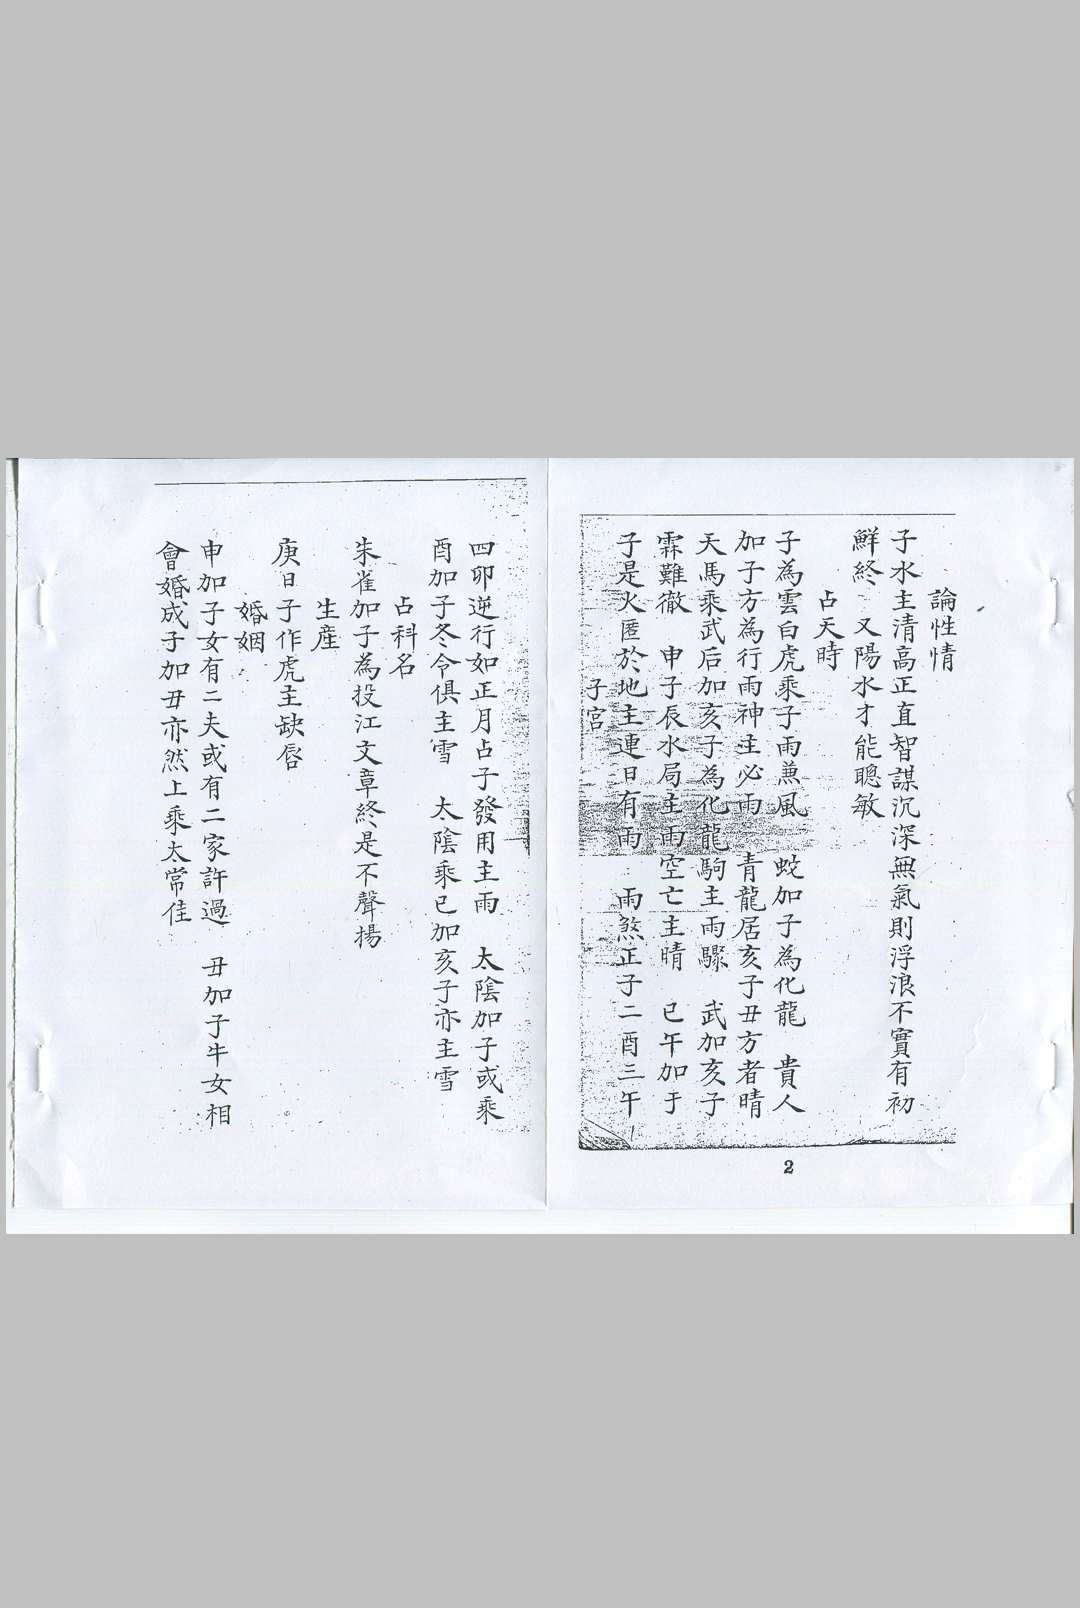 論性情
子水主清高正直智謀沉深無氣則浮浪不實有初
鮮終　又陽水才能聰敏
占天時
子為雲白虎乘子雨蒹風　蛇加子為化龍　貴人
加子方為行雨神主必雨　青龍居亥子丑方者晴
天馬乘武后加亥子為化龍駒主雨驟　武加亥子
霖難徹　申子辰水局主雨空亡主晴　巳午加于
子是火匿於地主連日有雨　雨煞正子二酉三午
子宮
2
四卯逆行如正月占子發用主雨　太陰加子或乘
酉加子冬令俱主雪　太陰乘巳加亥子亦主雪
占科名
朱雀加子為投江文章終是不聲揚
生產
庚日子作虎主缺唇
婚姻
申加子女有二夫或有二家許過　丑加子牛女相
會婚成子加丑亦然上乘太常佳